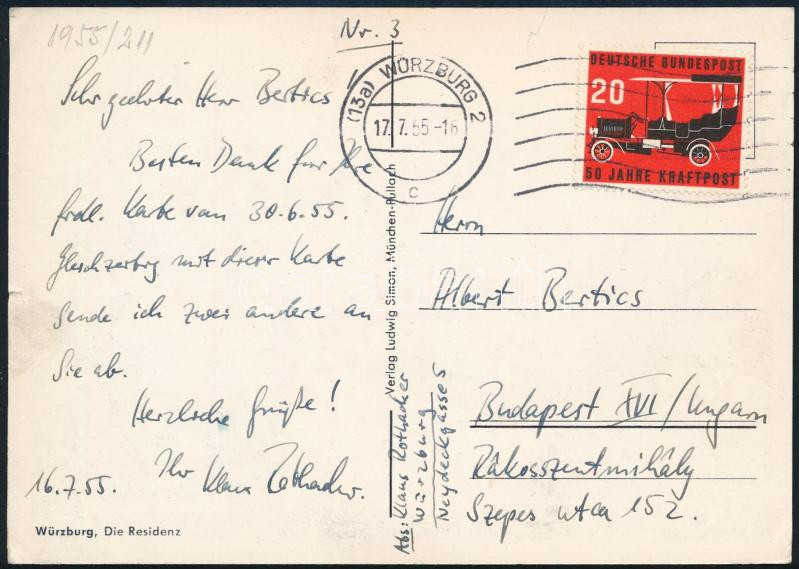 1955/211
Nr. 3
Sehr geehrter Herr Bertics
Besten Dank für Ihre
frdl. Karte vom 30.6.55.
Gleichzeitig mit dieser Karte
sende ich zwei andere an
Sie ab.
Herzliche Grüße!
Ihr Klaus Rothacher.
16.7.55.
Würzburg, Die Residenz
(13a) WÜRZBURG 2
17.7.55-16
c
DEUTSCHE BUNDESPOST
20
50 JAHRE KRAFTPOST
Verlag Ludwig Simon, München-Pullach
Herrn
Albert Bertics
Budapest XVI/Ungarn
Rákosszentmihály
Szepes utca 152.
Abs: Klaus Rothacher
Würzburg
Neydeckgasse 5